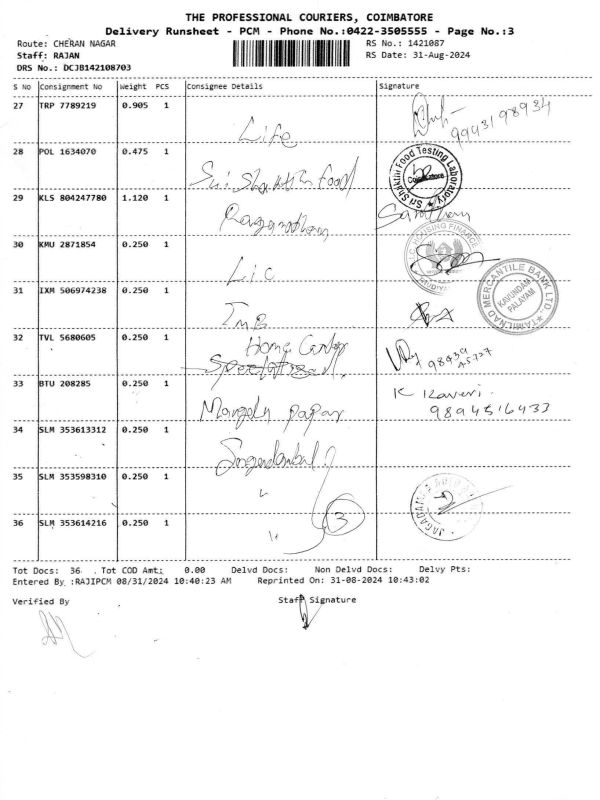 THE PROFESSIONAL COURIERS, COIMBATORE
Delivery Runsheet - PCM - Phone No.:0422-3505555 - Page No.:3
Route: CHERAN NAGAR
RS No.: 1421087
Staff: RAJAN
RS Date: 31-Aug-2024
DRS No.: DCJB142108703
S No Consignment No Weight PCS Consignee Details Signature
27 TRP 7789219 0.905 1 Life 9943198934
28 POL 1634070 0.475 1 Sri Shakthi Food
Sri Shakthi Food Testing Laboratory
Coimbatore
29 KLS 804247780 1.120 1
30 KMU 2871854 0.250 1 LIC
HOUSING FINANCE
31 IXM 506974238 0.250 1 TMB
TAMILNAD MERCANTILE BANK LTD.,
KAVUNDAM
PALAYAM
32 TVL 5680605 0.250 1 Home
33 BTU 208285 0.250 1 K Kaveri.
9894516433
34 SLM 353613312 0.250 1
35 SLM 353598310 0.250 1 "
36 SLM 353614216 0.250 1 " 3
Tot Docs: 36 . Tot COD Amt: 0.00 Delvd Docs: Non Delvd Docs: Delvy Pts:
Entered By :RAJIPCM 08/31/2024 10:40:23 AM Reprinted On: 31-08-2024 10:43:02
Verified By Staff Signature